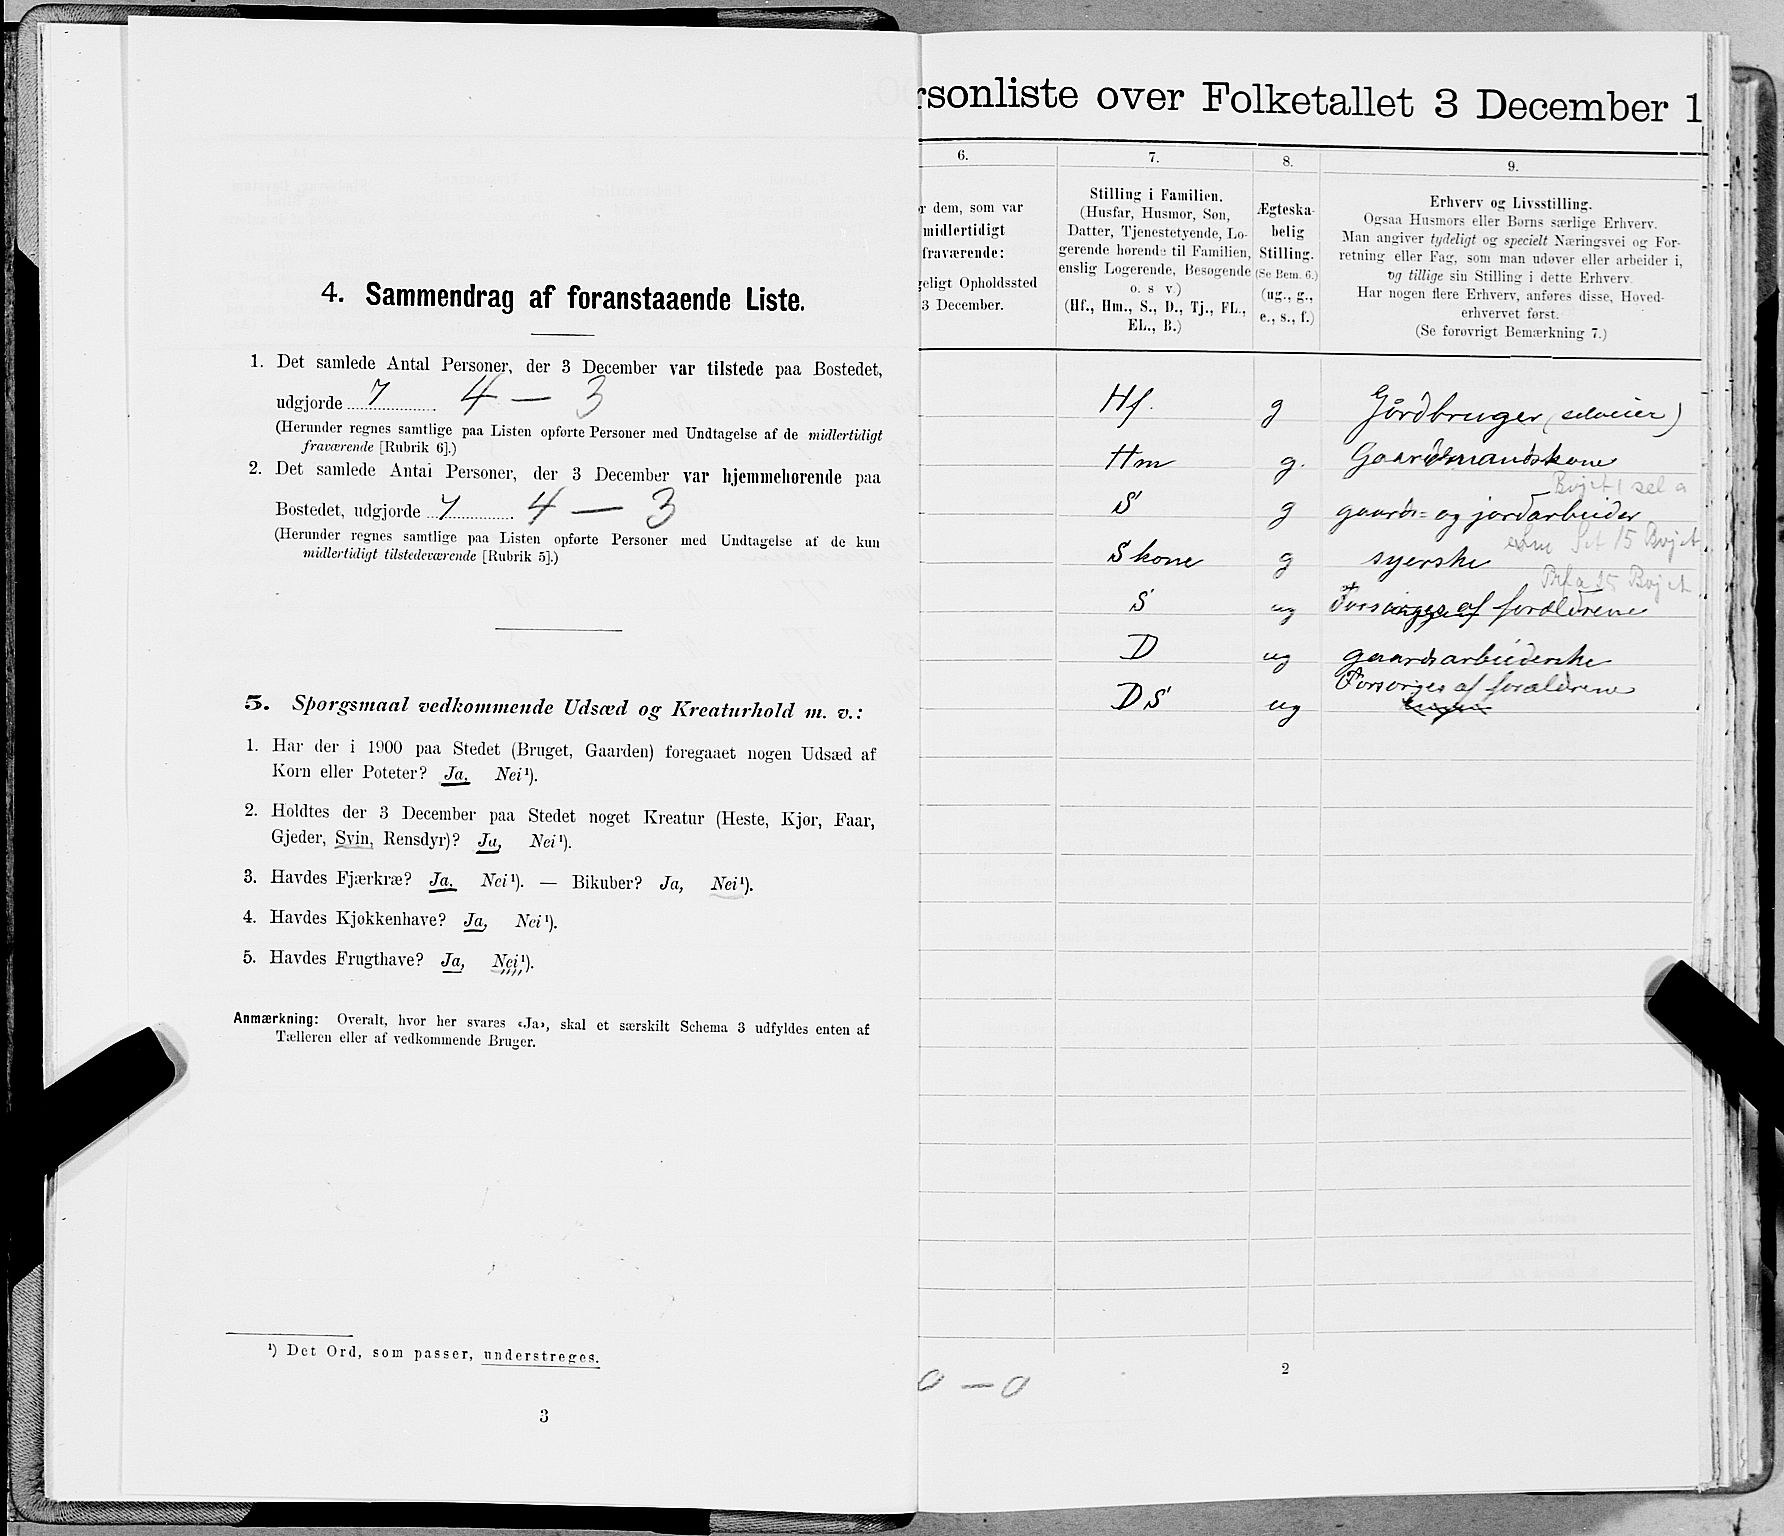 4. Sammendrag af foranstaaende Liste.
1. Det samlede Antal Personer, der 3 December var tilstede paa Bostedet,
udgjorde 7 4 — 3
(Herunder regnes samtlige paa Listen opførte Personer med Undtagelse af de midlertidigt
fraværende [Rubrik 6].)
2. Det samlede Antal Personer, der 3 December var hjemmehørende paa
Bostedet, udgjorde 7 4 — 3
(Herunder regnes samtlige paa Listen opførte Personer med Undtagelse af de kun
midlertidigt tilstedeværende [Rubrik 5].)
5. Spørgsmaal vedkommende Udsæd og Kreaturhold m. v.:
1. Har der i 1900 paa Stedet (Bruget, Gaarden) foregaaet nogen Udsæd af
Korn eller Poteter? Ja. Nei¹).
2. Holdtes der 3 December paa Stedet noget Kreatur (Heste, Kjør, Faar,
Gjeder, Svin, Rensdyr)? Ja, Nei¹).
3. Havdes Fjærkræ? Ja. Nei¹). — Bikuber? Ja, Nei¹).
4. Havdes Kjøkkenhave? Ja, Nei¹).
5. Havdes Frugthave? Ja, Nei¹).
Anmærkning: Overalt, hvor her svares «Ja», skal et særskilt Schema 3 udfyldes enten af
Tælleren eller af vedkommende Bruger.
¹) Det Ord, som passer, understreges.
3
rsonliste over Folketallet 3 December 1
6.
r dem, som var
midlertidigt
fraværende:
geligt Opholdssted
3 December.
7.
Stilling i Familien.
(Husfar, Husmor, Søn,
Datter, Tjenestetyende, Lo-
gerende hørende til Familien,
enslig Logerende, Besøgende
o. s v.)
(Hf., Hm., S., D., Tj., FL.,
EL., B.)
8.
Ægteska-
belig
Stilling.
(Se Bem. 6.)
(ug., g.,
e., s., f.)
9.
Erhverv og Livsstilling.
Ogsaa Husmors eller Børns særlige Erhverv.
Man angiver tydeligt og specielt Næringsvei og For-
retning eller Fag, som man udøver eller arbeider i,
og tillige sin Stilling i dette Erhverv.
Har nogen flere Erhverv, anføres disse, Hoved-
erhvervet først.
(Se forøvrigt Bemærkning 7.)
Hf. g Gårdbruger (selveier)
Hm g. Gaardmandskone
S g gaards- og jordarbeider
S kone g syerske
S ug Forsørges af forældrene
D ug gaardsarbeiderske
DS ug Forsørges af forældrene
0 — 0
2